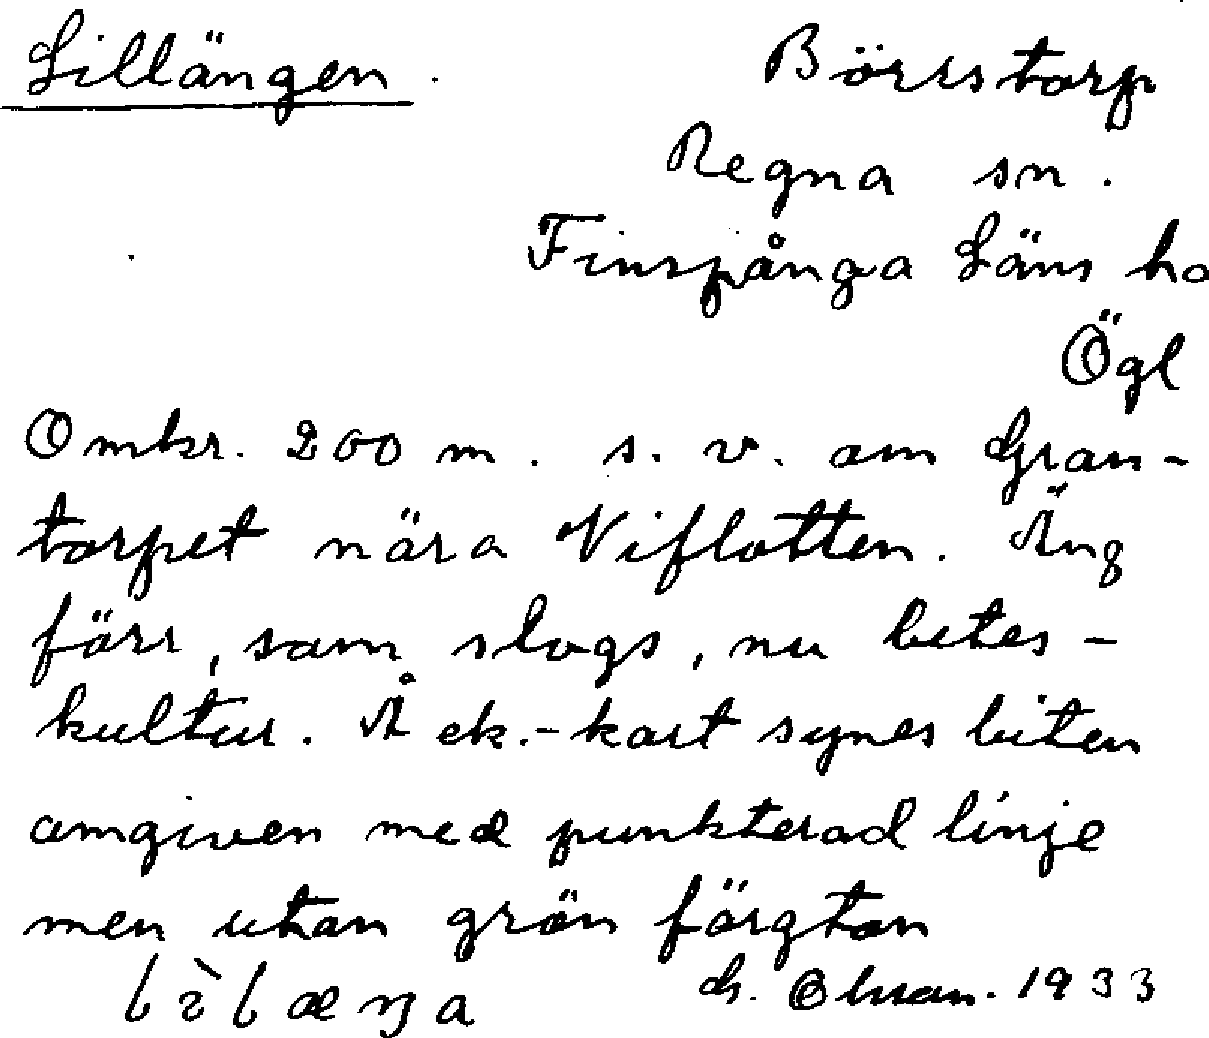 Lillängen. Börrstorp
Regna sn.
Finspånga Läns hd
Ögl
Omkr. 200 m. s.v. om Gran-
torpet nära Viflotten. Äng
förr, som slogs, nu betes-
kultur. Å ek.-kart synes biten
omgiven med punkterad linje
men utan grön färgton
G. Ohlson. 1933